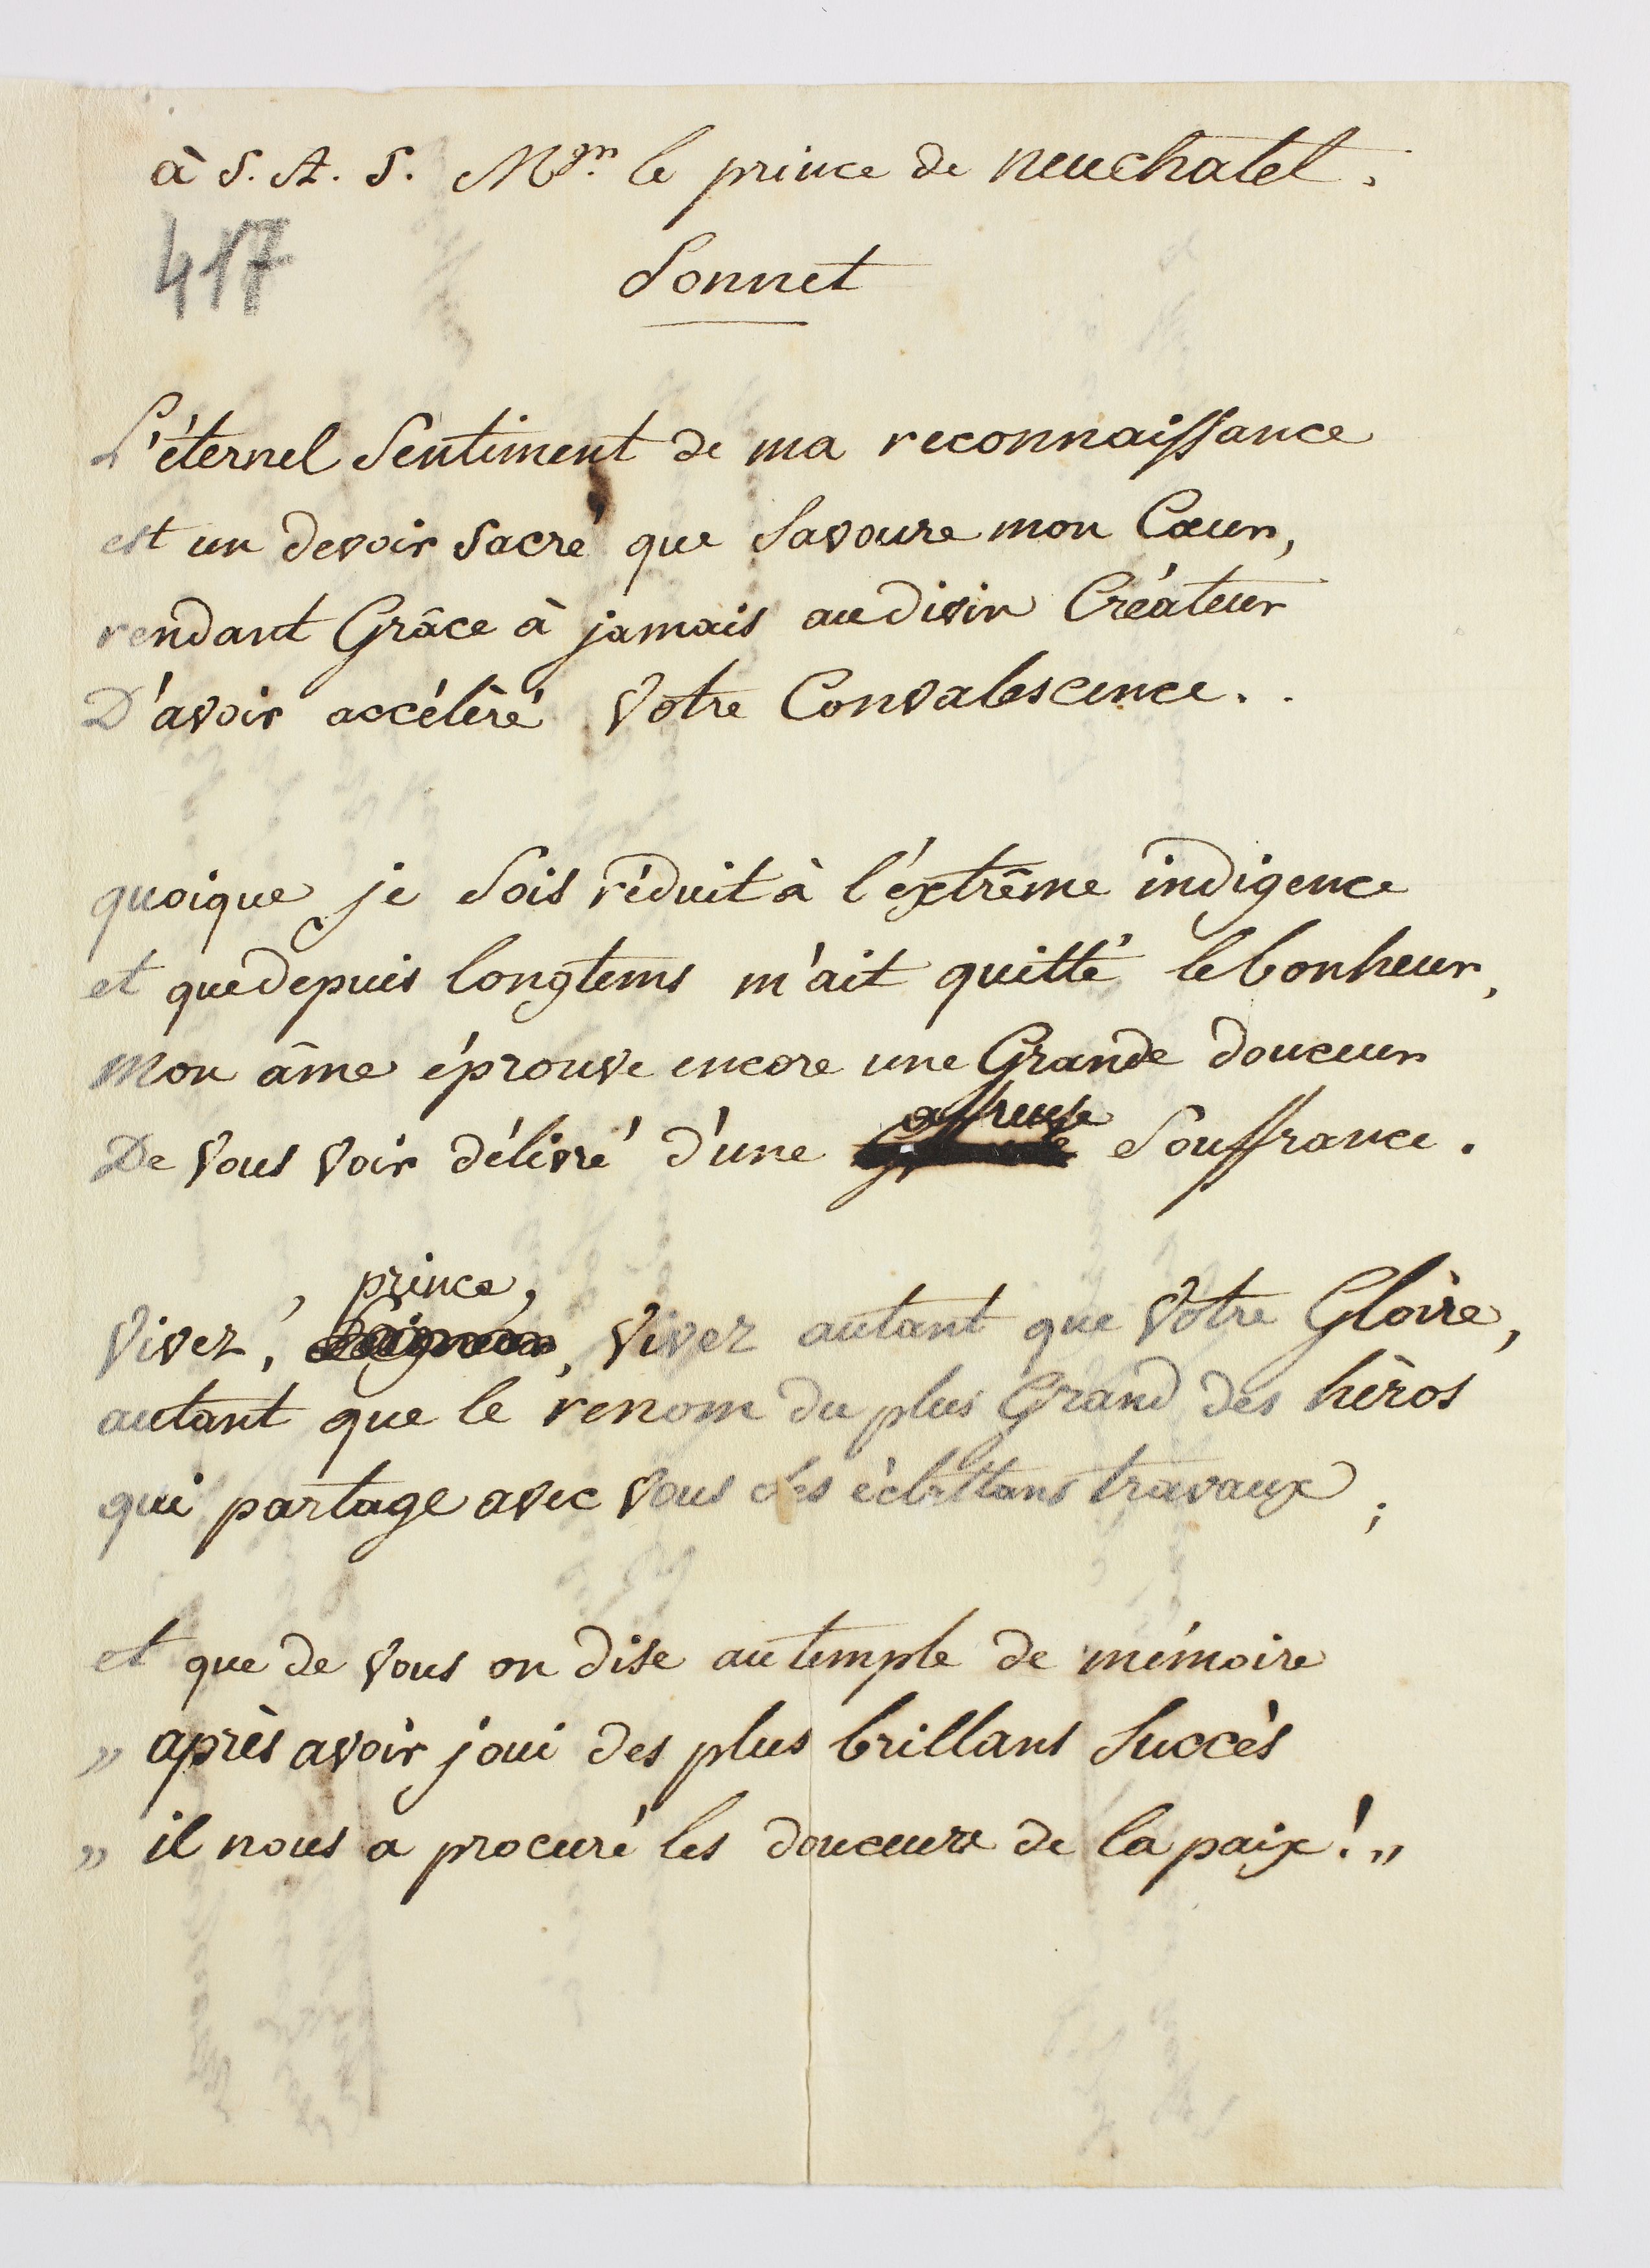 à S. A. S. Mgr. le prince de neuchatel.
417
Sonnet
L'éternel Sentiment de ma reconnaissance
est un devoir sacré que Savoure mon Cœur,
rendant Grâce à jamais au divin Créateur
D'avoir accéléré Votre Convalescence..
quoique je Sois réduit à l'éxtrême indigence
et que depuis longtems m'ait quitté le bonheur,
Mon âme éprouve encore une Grande douceur
affreuse
De Vous Voir délivré d'une Souffrance.
, prince,
Vivez, Seigneur, Vivez autant que Votre Gloire,
autant que le renom du plus Grand des héros
qui partage avec Vous des éclattans travaux;
et que de Vous on dise au temple de mémoire
" après avoir joui des plus brillans Succès
" il nous a procuré les douceurs de la paix!"